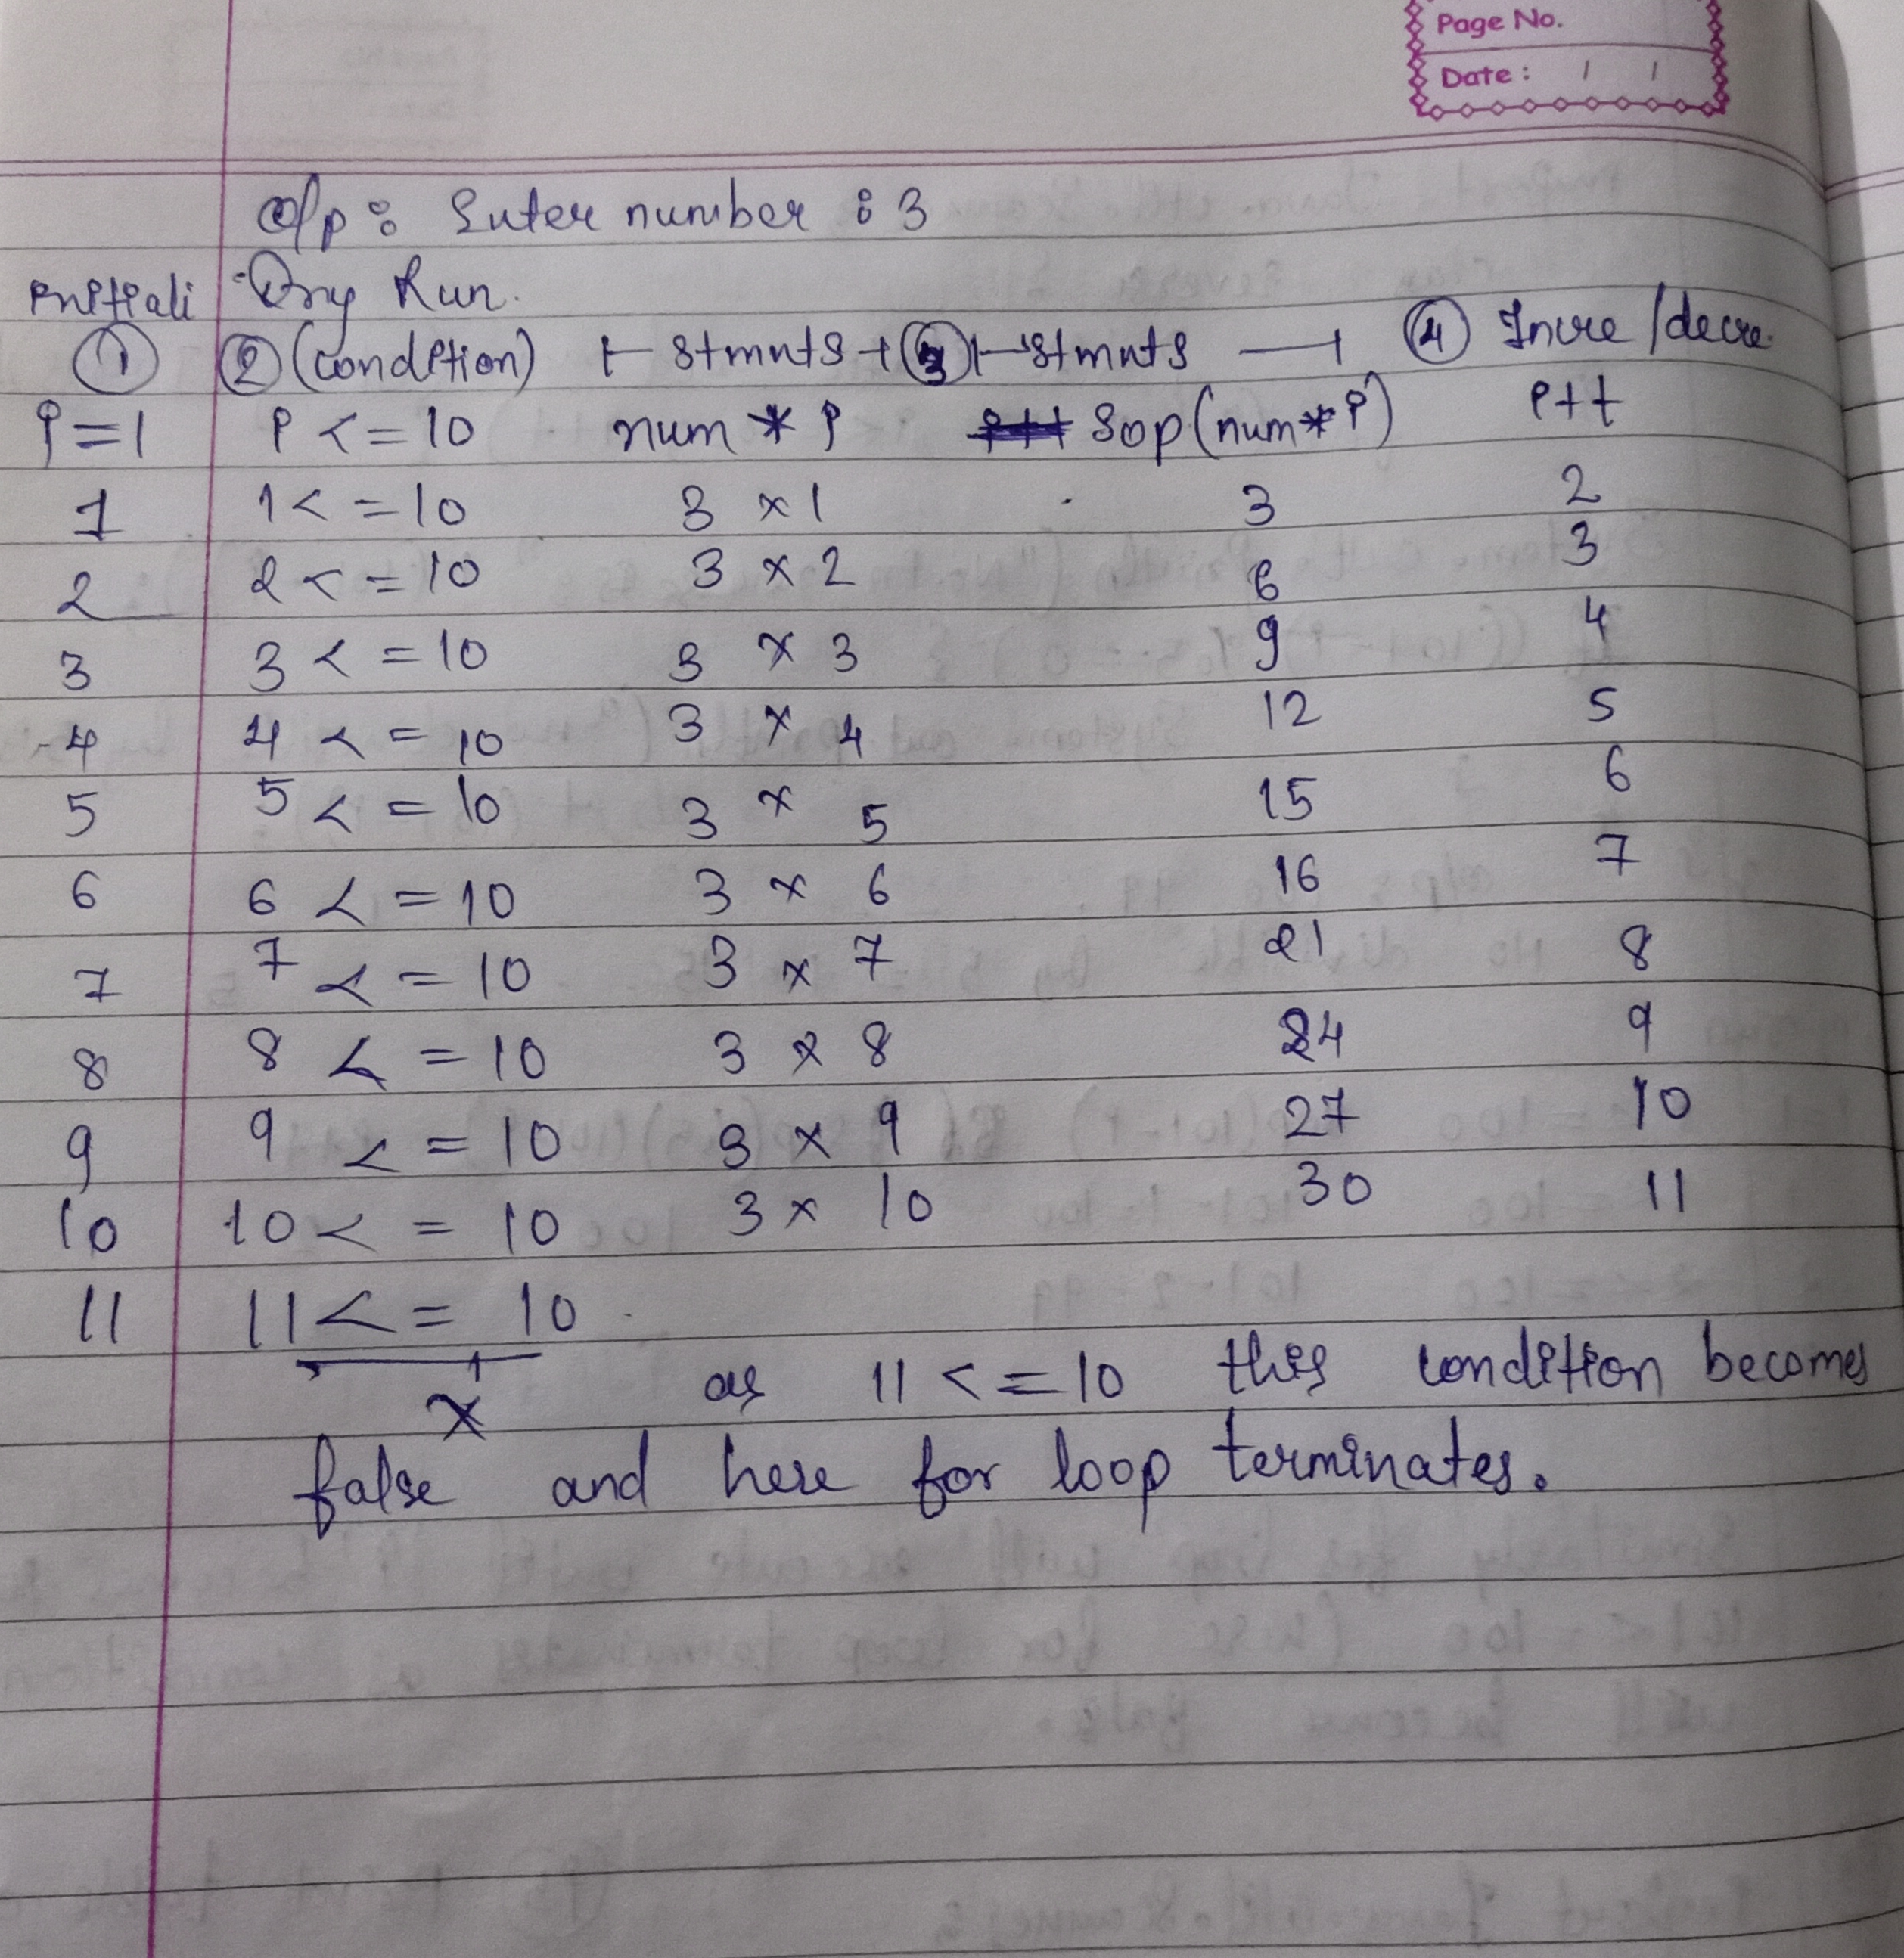 Page No.
Date : / /
o/p : Enter number : 3
initiali Dry Run.
① ② (condition) ⊢ stmnts ⊣ ③ ⊢ stmnts ⊣ ④ Incre/decre.
i=1 i <= 10 num * i i++ Sop(num*i) i++
1 1 <= 10 3 x 1 3 2
2 2 <= 10 3 x 2 6 3
3 3 <= 10 3 x 3 9 4
4 4 <= 10 3 x 4 12 5
5 5 <= 10 3 x 5 15 6
6 6 <= 10 3 x 6 16 7
7 7 <= 10 3 x 7 21 8
8 8 <= 10 3 x 8 24 9
9 9 <= 10 3 x 9 27 10
10 10 <= 10 3 x 10 30 11
11 11 <= 10
x as 11 <= 10 this condition becomes
false and here for loop terminates.